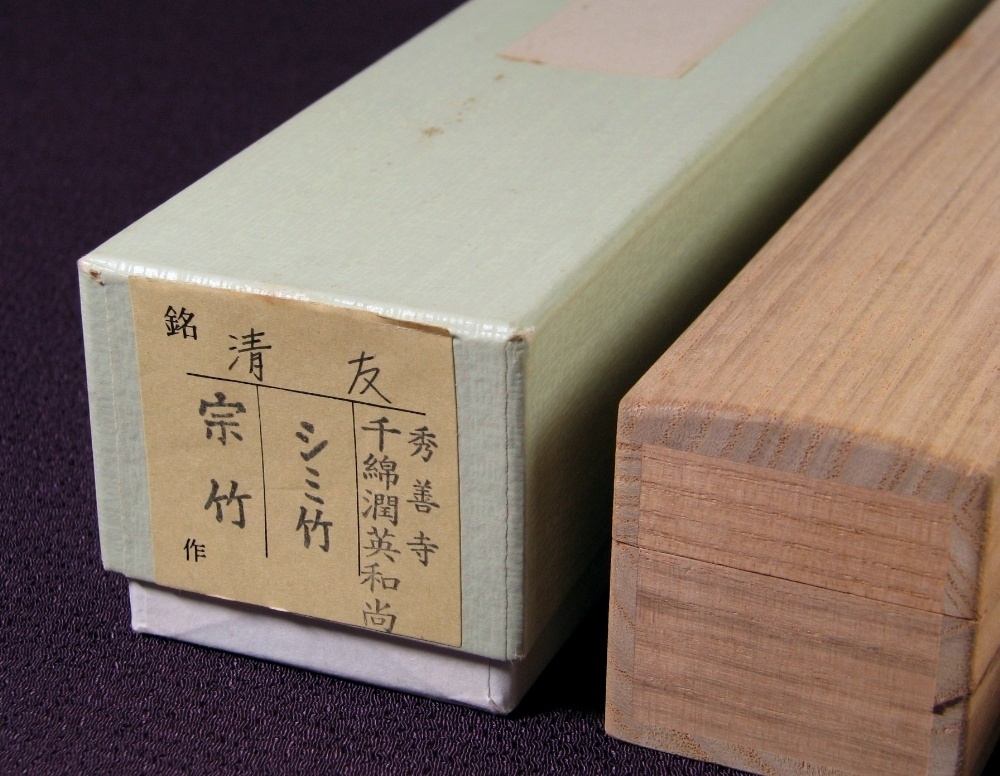 銘
清友
秀善寺
千綿潤英和尚
シミ竹
宗竹
作